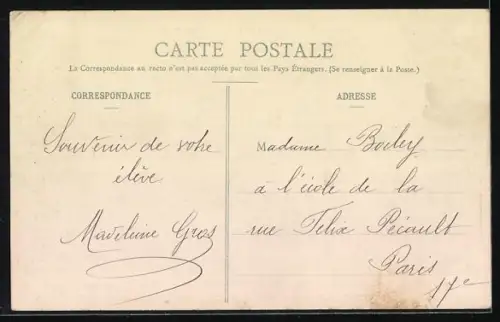 CARTE POSTALE
La Correspondance au recto n'est pas acceptée par tous les Pays Étrangers. (Se renseigner à la Poste.)
CORRESPONDANCE
Souvenir de votre
élève
Madeleine Gros
ADRESSE
Madame
à l'école de la
rue Félix Pécault
Paris
17e